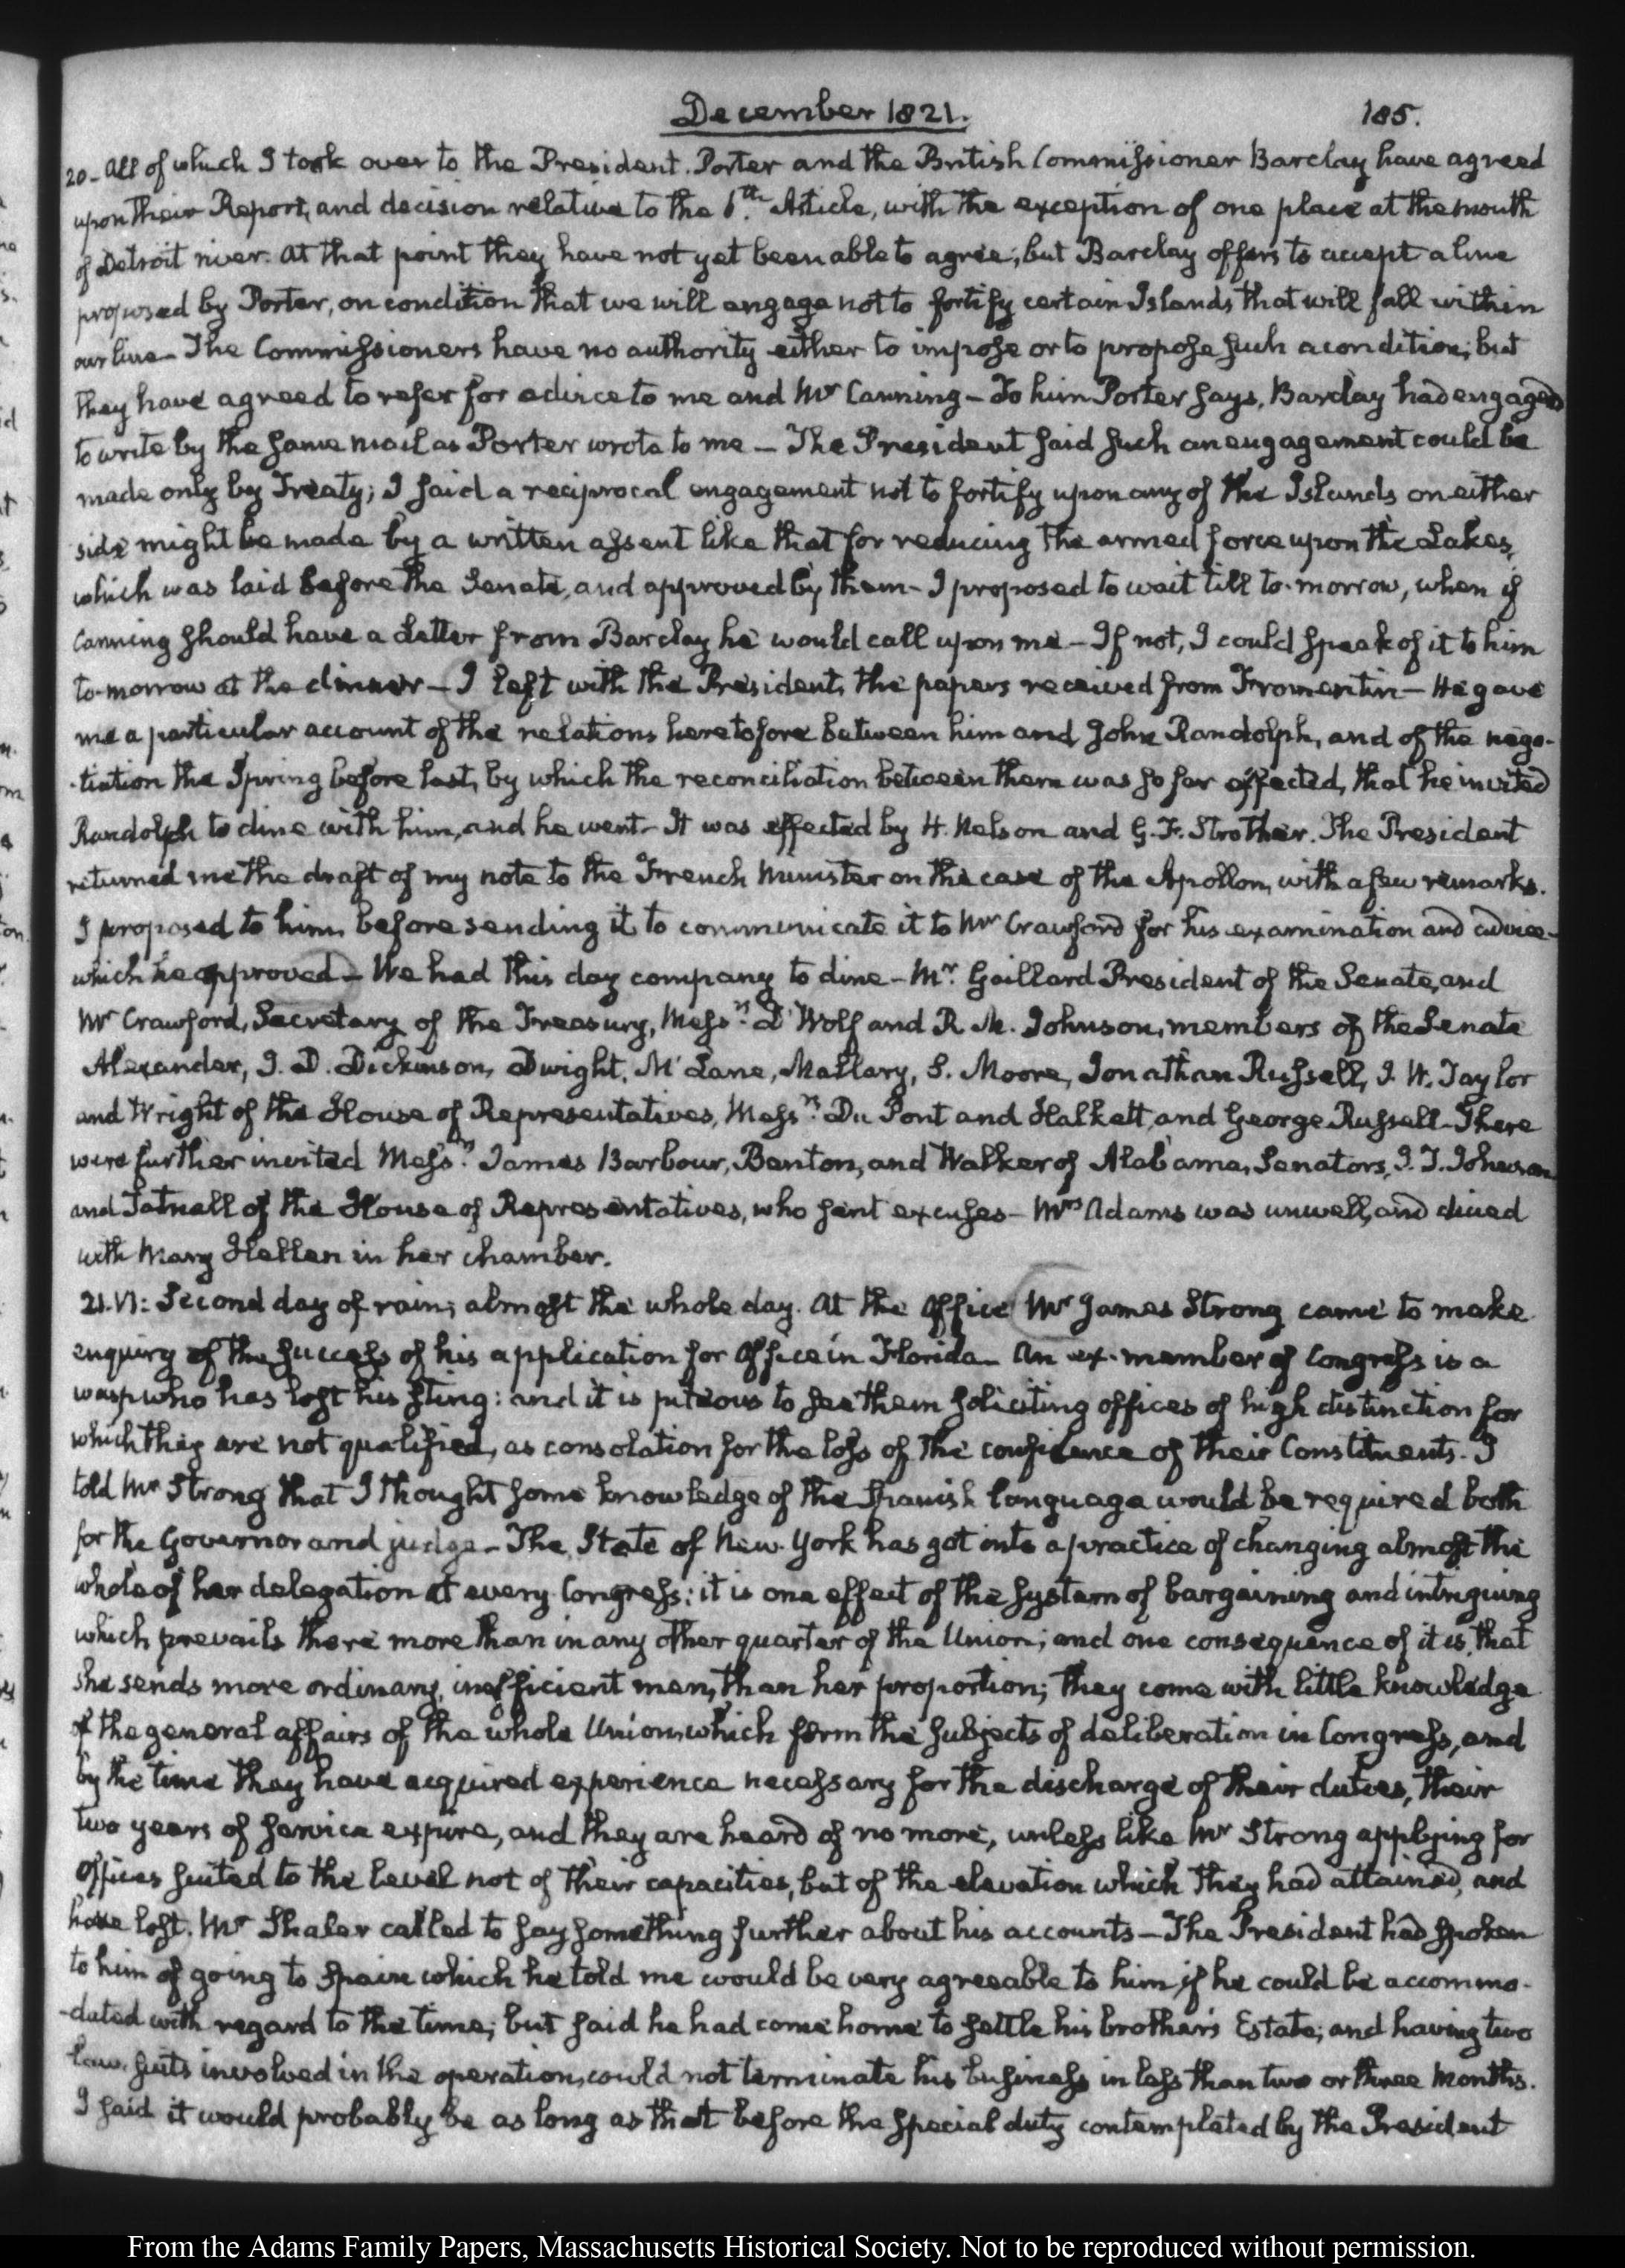 December 1821.
185.
20 - All of which I took over to the President. Porter and the British Commissioner Barclay have agreed
upon their Report, and decision relative to the 6.th Article, with the exception of one place at the mouth
of Detroit river. At that point they have not yet been able to agree; but Barclay offers to accept a line
proposed by Porter, on condition that we will engage not to fortify certain Islands that will fall within
our line - The Commissioners have no authority either to impose or to propose such a condition; but
they have agreed to refer for advice to me and Mr Canning - To him Porter says, Barclay had engaged
to write by the same mail as Porter wrote to me - The President said such an engagement could be
made only by Treaty; I said a reciprocal engagement not to fortify upon any of the Islands on either
side might be made by a written assent like that for reducing the armed force upon the Lakes,
which was laid before the Senate, and approved by them - I proposed to wait till to-morrow, when if
Canning should have a Letter from Barclay he would call upon me - If not, I could speak of it to him
to-morrow at the dinner - I left with the President, the papers received from Fromentin - He gave
me a particular account of the relations heretofore between him and John Randolph, and of the nego-
-tiation the Spring before last, by which the reconciliation between them was so far effected, that he invited
Randolph to dine with him, and he went - It was effected by H. Nelson and G. F. Strother. The President
returned me the draft of my note to the French Minister on the case of the Apollon, with a few remarks.
I proposed to him, before sending it, to communicate it to Mr Crawford for his examination and advice -
which he approved - We had this day company to dine - Mr. Gaillard President of the Senate, and
Mr Crawford, Secretary of the Treasury, Messrs. D'Wolf and R. M. Johnson, members of the Senate
Alexander, J. D. Dickinson, Dwight, McLane, Mallary, S. Moore, Jonathan Russell, J. W. Taylor
and Wright of the House of Representatives, Messrs. Du Pont and Halkett, and George Russell - There
were further invited Messrs. James Barbour, Benton, and Walker of Alabama, Senators, J. T. Johnson
and Tatnall of the House of Representatives, who sent excuses - Mrs Adams was unwell, and dined
with Mary Hellen in her chamber.
21. VI: Second day of rain; almost the whole day. At the Office Mr James Strong came to make
enquiry of the success of his application for Office in Florida - An ex-member of Congress is a
wasp who has lost his sting: and it is piteous to see them soliciting offices of high distinction for
which they are not qualified, as consolation for the loss of the confidence of their Constituents. I
told Mr Strong that I thought some knowledge of the Spanish language would be required both
for the Governor and judge - The State of New-York has got into a practice of changing almost the
whole of her delegation at every Congress: it is one effect of the system of bargaining and intriguing
which prevails there more than in any other quarter of the Union; and one consequence of it is, that
she sends more ordinary, inefficient men, than her proportion; they come with little knowledge
of the general affairs of the whole Union, which form the subjects of deliberation in Congress, and
by the time they have acquired experience necessary for the discharge of their duties, their
two years of service expire, and they are heard of no more, unless like Mr Strong applying for
Offices suited to the level not of their capacities, but of the elevation which they had attained, and
have lost. Mr Shaler called to say something further about his accounts - The President had spoken
to him of going to Spain which he told me would be very agreeable to him, if he could be accommo-
-dated with regard to the time; but said he had come home to settle his brother's Estate; and having two
law-suits involved in the operation, could not terminate his business in less than two or three Months.
I said it would probably be as long as that before the special duty contemplated by the President
From the Adams Family Papers, Massachusetts Historical Society. Not to be reproduced without permission.